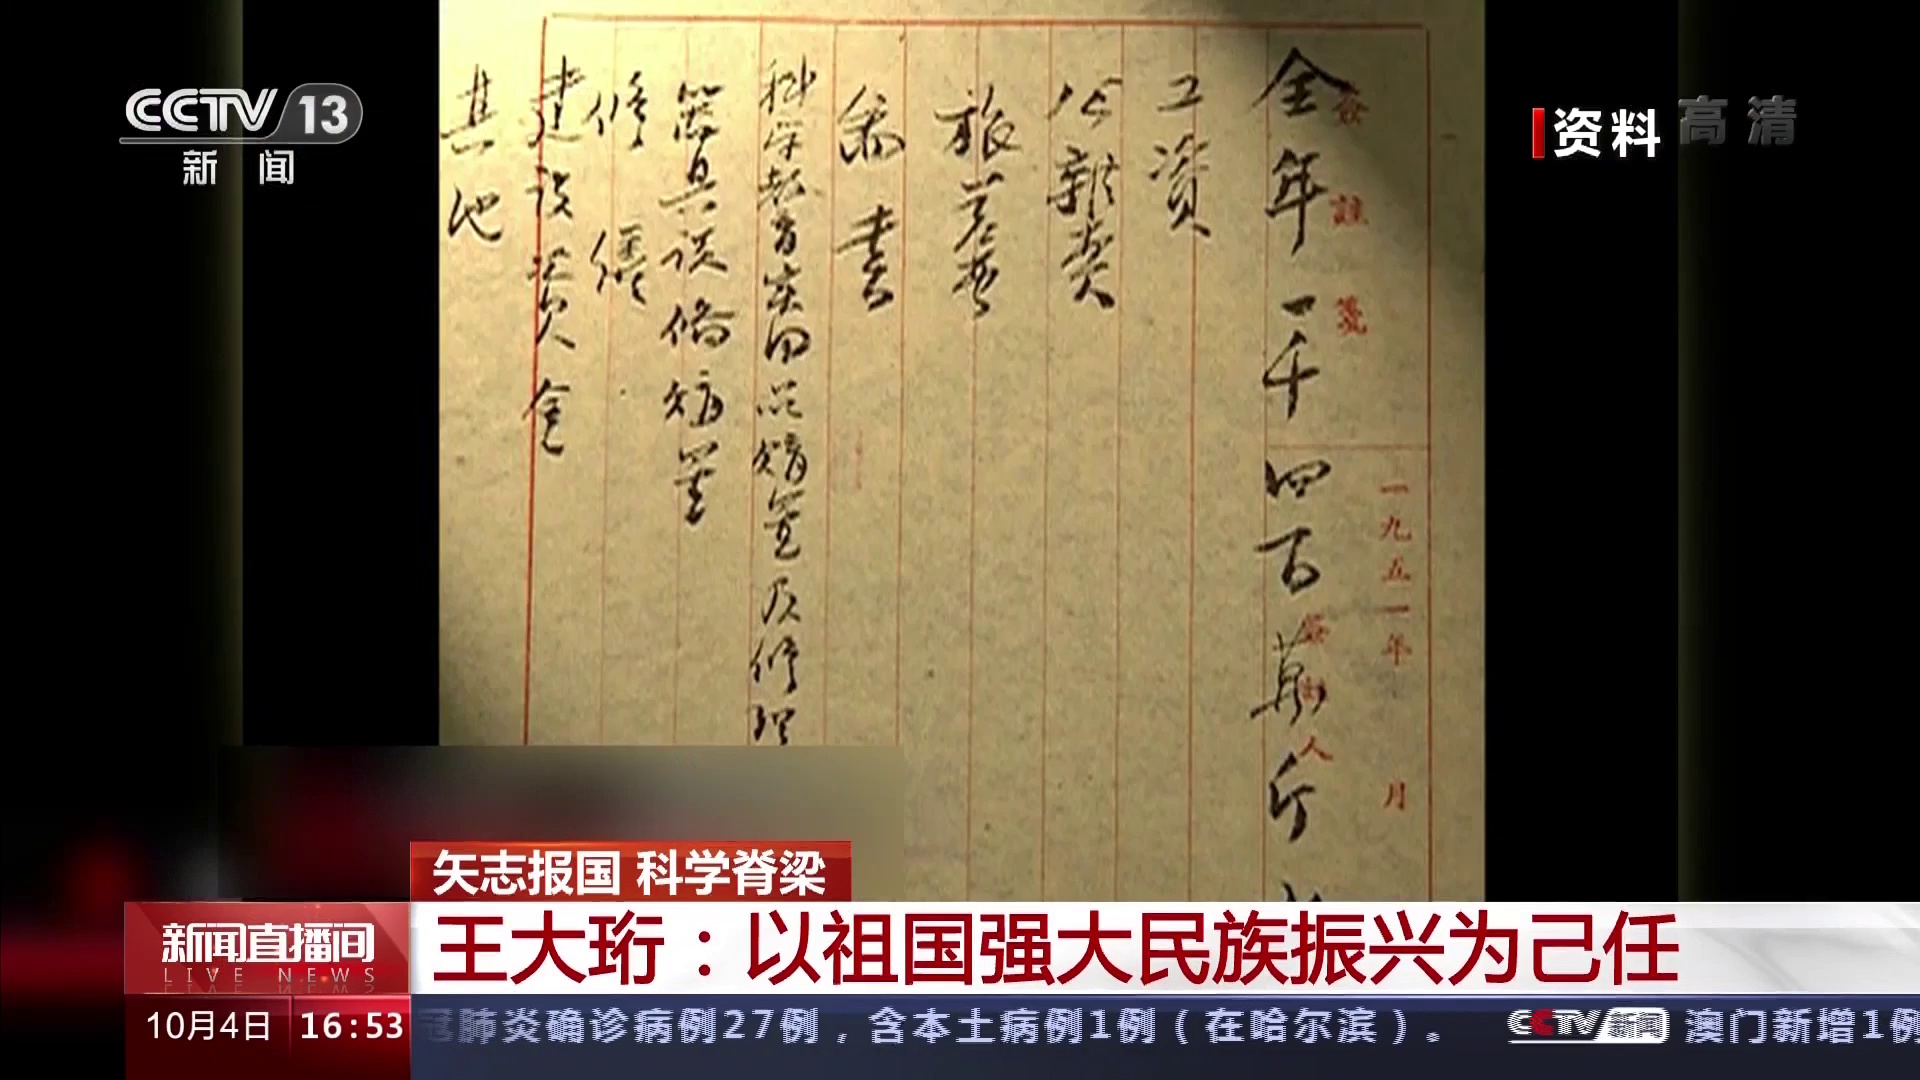 CCTV 13
新闻
资料
高清
全年一千四百萬斤
工资
公雜费
旅差费
图書
科学教育实用品购置及修理
器具设备购置
修缮
建设资金
其他
一九五一年 月
矢志报国 科学脊梁
新闻直播间
LIVE NEWS
王大珩：以祖国强大民族振兴为己任
10月4日 16:53
冠肺炎确诊病例27例，含本土病例1例（在哈尔滨）。 CCTV新闻 澳门新增1例